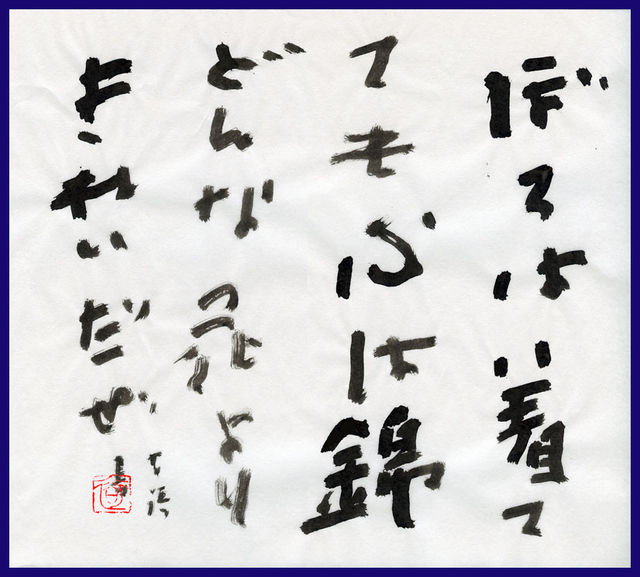 ぼろは着て
ても心は錦
どんな花より
きれいだぜ